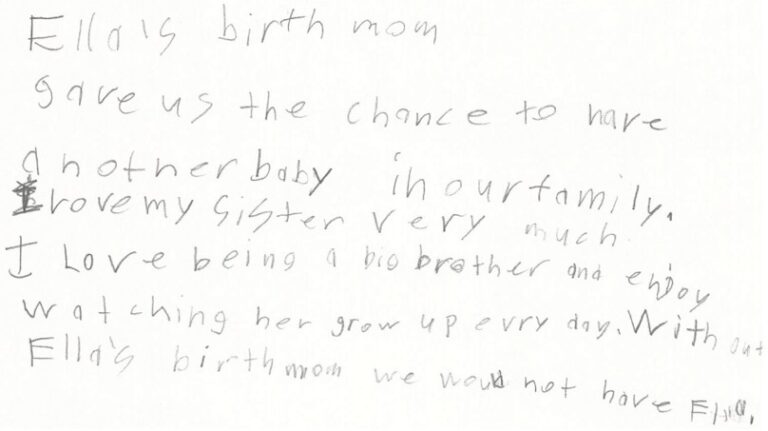 Ella's birth mom
gave us the chance to have
another baby in our family.
I love my sister very much.
I Love being a big brother and enjoy
watching her grow up evry day. With out
Ella's birth mom we would not have Ella.